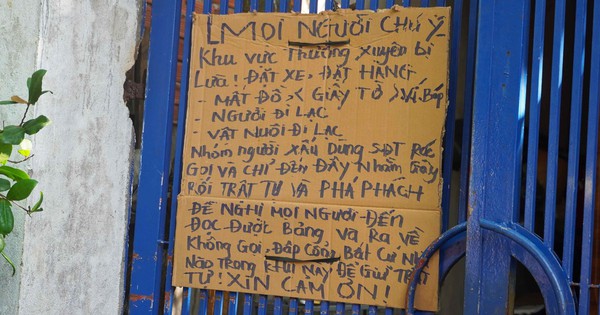 MỌI NGƯỜI CHÚ Ý
Khu vực Thường xuyên bị
Lừa! ĐẶT XE, ĐẶT HÀNG
- MẤT ĐỒ > < GIẤY TỜ > Và Bóp
NGƯỜI ĐI LẠC
- VẬT NUÔI ĐI LẠC
Nhóm người xấu Dùng SĐT Rác
GỌI VÀ CHỈ ĐẾN ĐÂY Nhằm Gây
RỐI TRẬT TỰ VÀ PHÁ PHÁCH
ĐỀ NGHỊ MỌI NGƯỜI ĐẾN
ĐỌC ĐƯỢC BẢNG Và Ra VỀ
KHÔNG GỌI, ĐẬP CỔNG BẤT CỨ
NÀO TRONG KHU NÀY ĐỂ GIỮ TRẬT
TỰ! XIN CÁM ƠN!